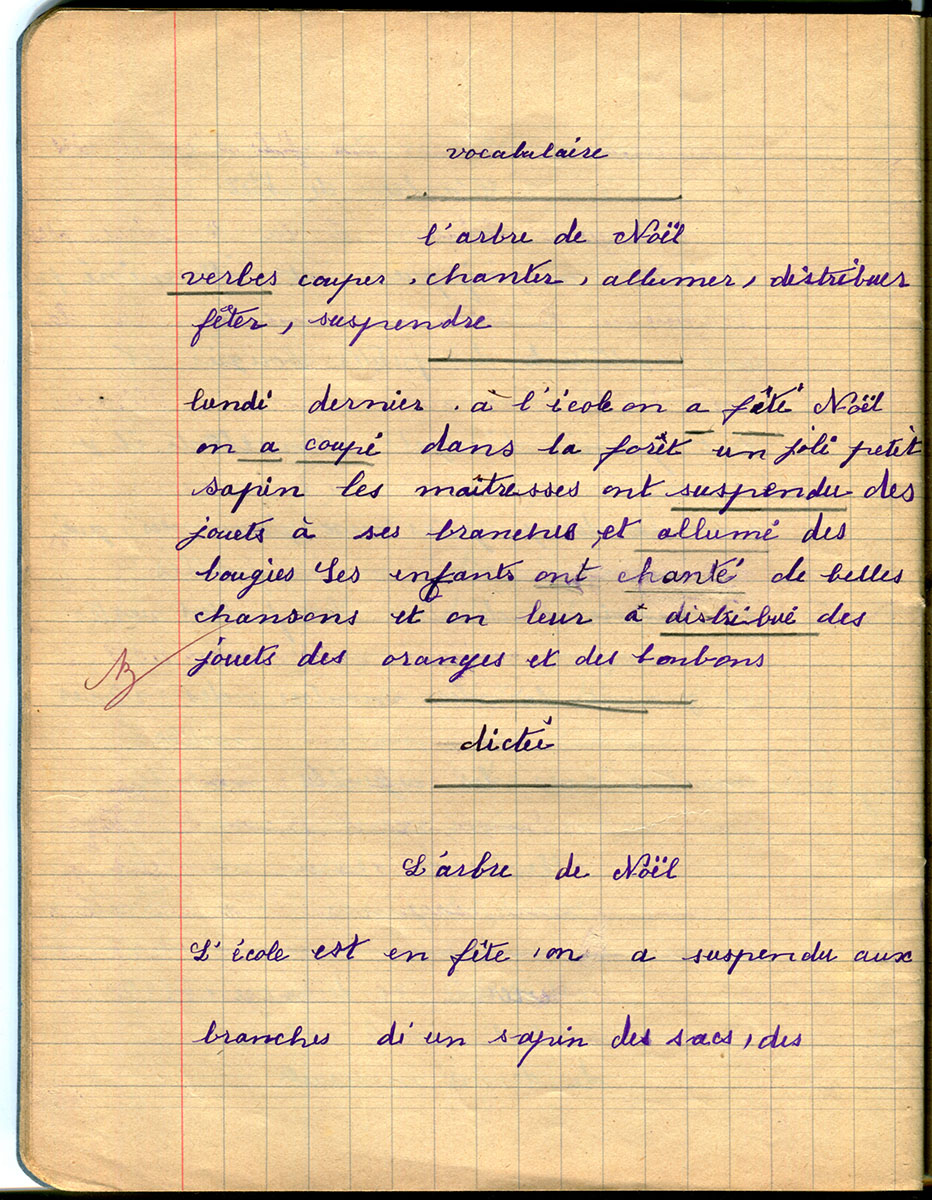 vocabulaire
l'arbre de Noël
verbes couper, chanter, allumer, distribuer
fêter, suspendre
lundi dernier, à l'école on a fêté Noël
on a coupé dans la forêt un joli petit
sapin les maîtresses ont suspendu des
jouets à ses branches et allumé des
bougies Les enfants ont chanté de belles
chansons et on leur a distribué des
jouets des oranges et des bonbons
B
dicteé
L'arbre de Noël
L'école est en fête, on a suspendu aux
branches d'un sapin des sacs, des